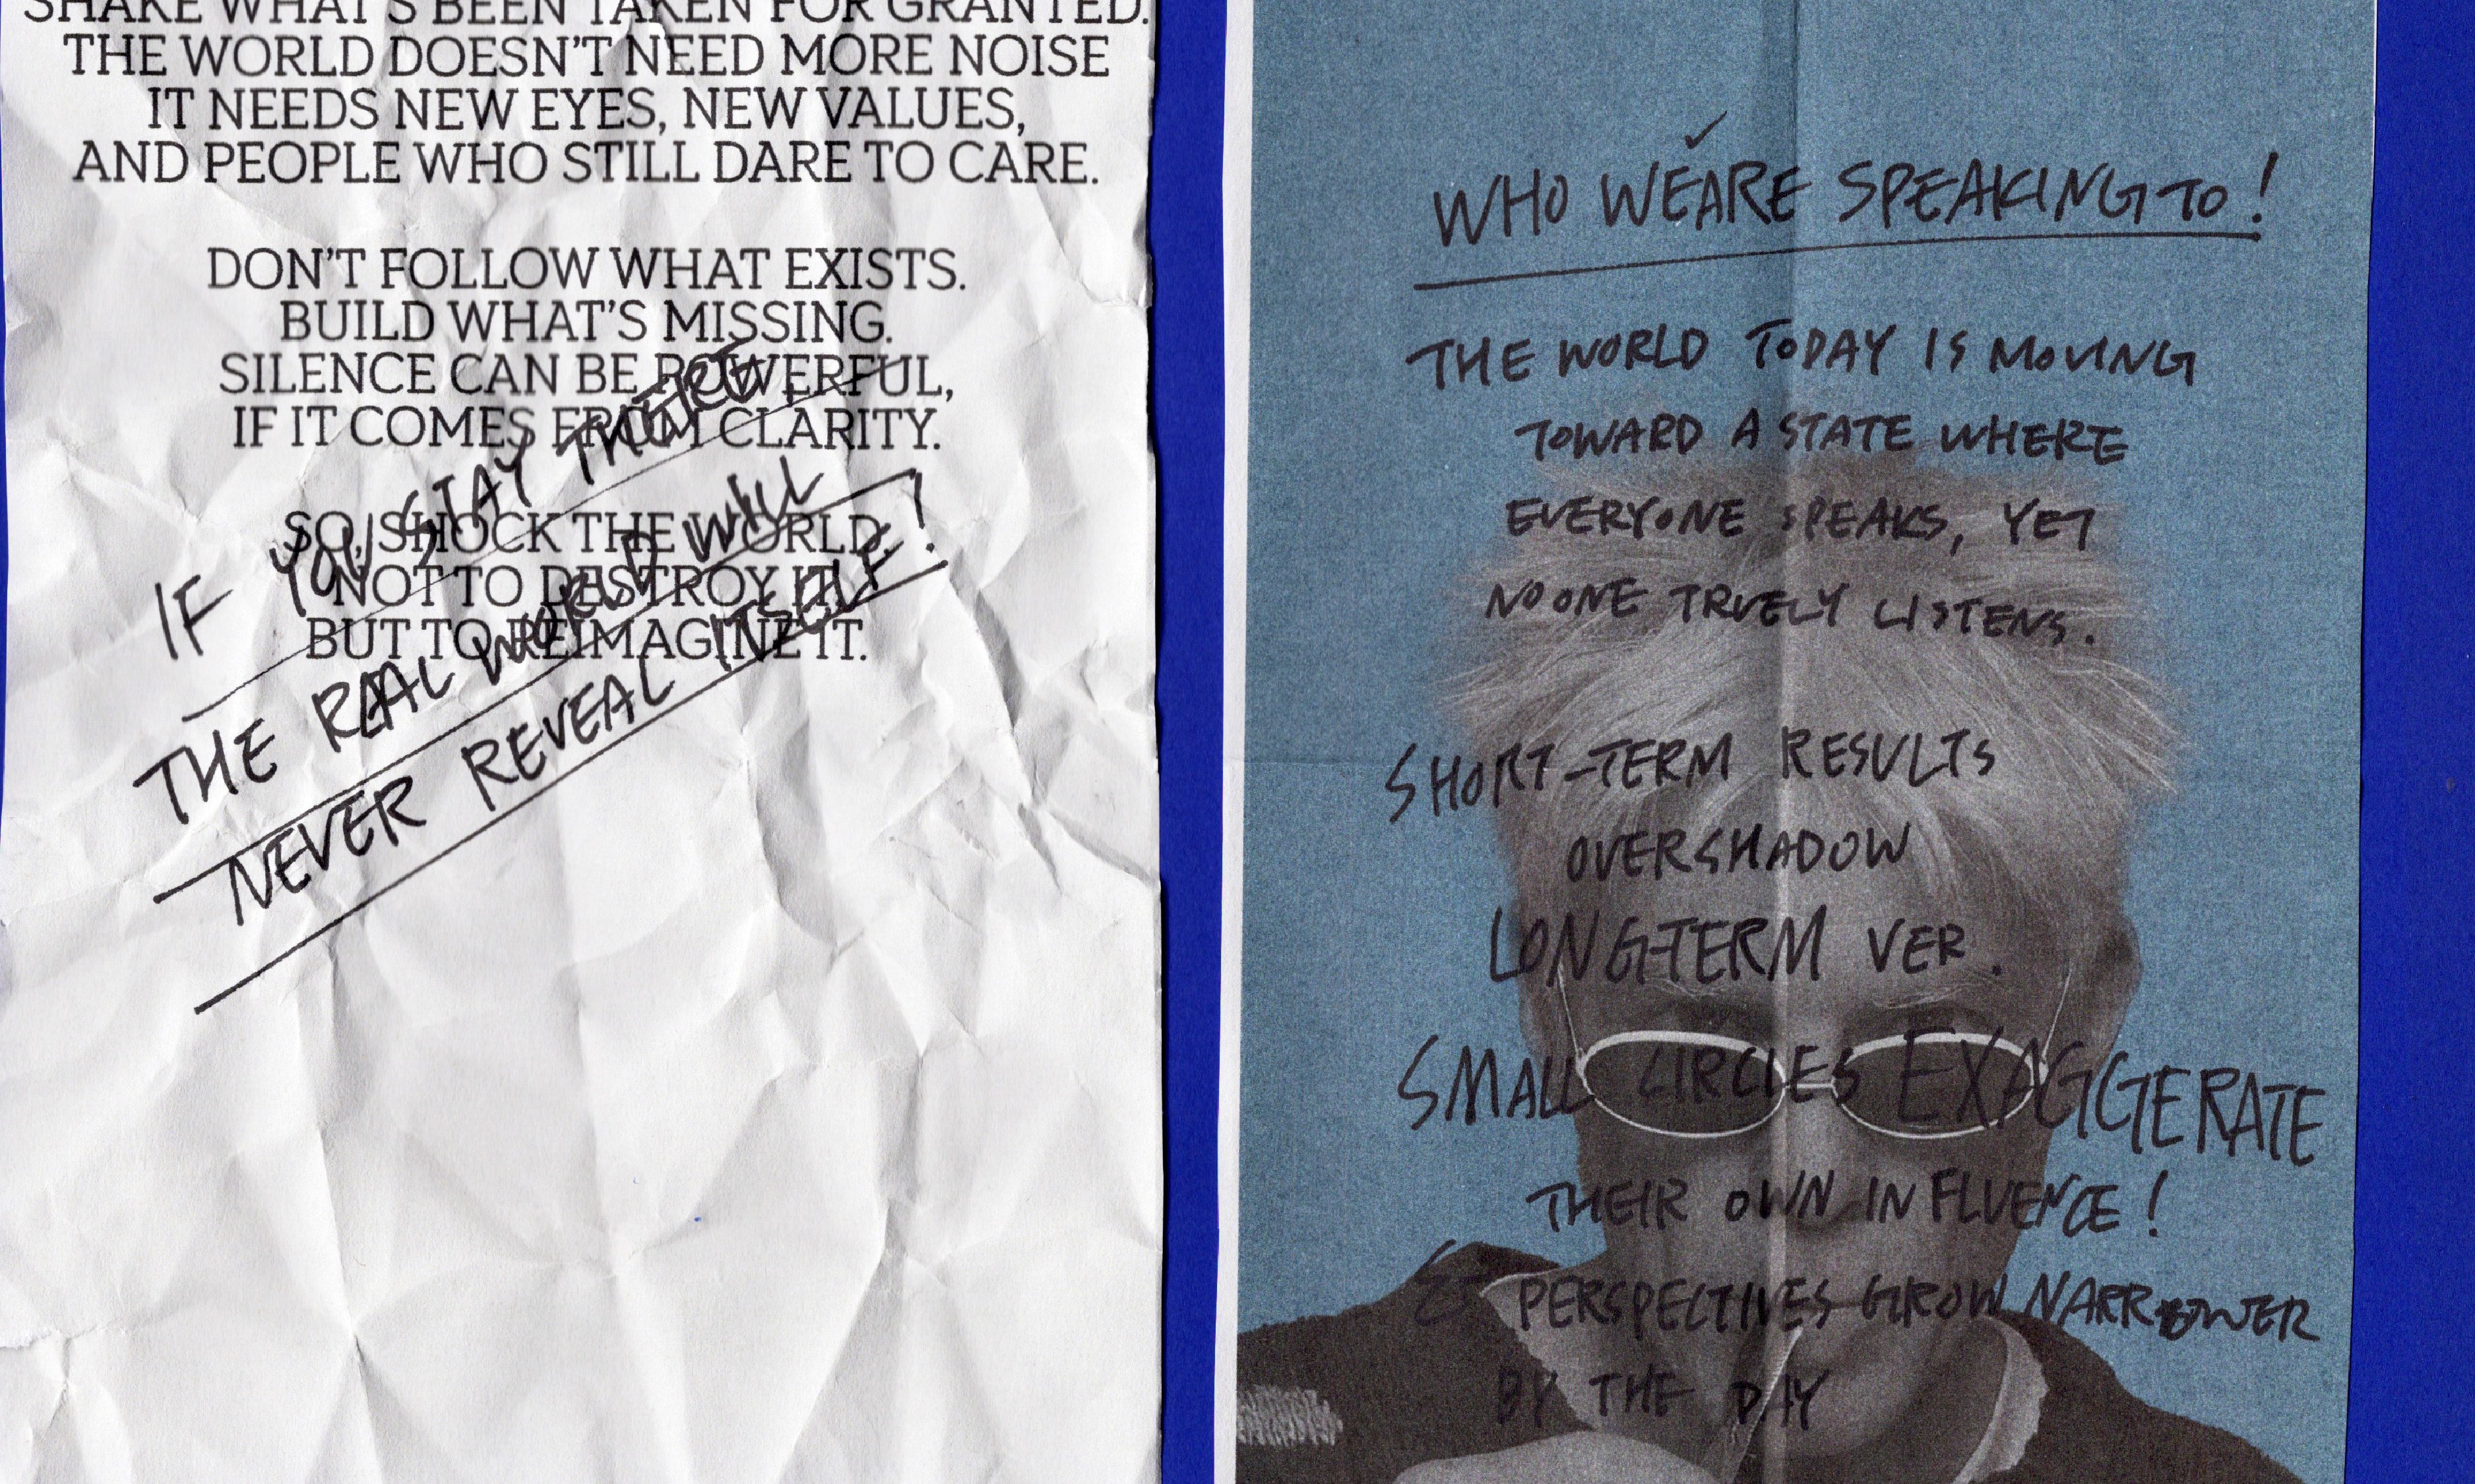 SHAKE WHAT'S BEEN TAKEN FOR GRANTED.
THE WORLD DOESN'T NEED MORE NOISE
IT NEEDS NEW EYES, NEW VALUES,
AND PEOPLE WHO STILL DARE TO CARE.
DON'T FOLLOW WHAT EXISTS.
BUILD WHAT'S MISSING.
SILENCE CAN BE POWERFUL,
IF IT COMES FROM CLARITY.
SO, SHOCK THE WORLD.
NOT TO DESTROY IT,
BUT TO REIMAGINE IT.
IF YOU STAY THERE
THE REAL WORLD WILL
NEVER REVEAL ITSELF!
WHO WE ARE SPEAKING TO!
THE WORLD TODAY IS MOVING
TOWARD A STATE WHERE
EVERYONE SPEAKS, YET
NO ONE TRUELY LISTENS.
SHORT-TERM RESULTS
OVERSHADOW
LONG-TERM VER.
SMALL CIRCLES EXAGGERATE
THEIR OWN INFLUENCE!
& PERSPECTIVES GROW NARROWER
BY THE DAY